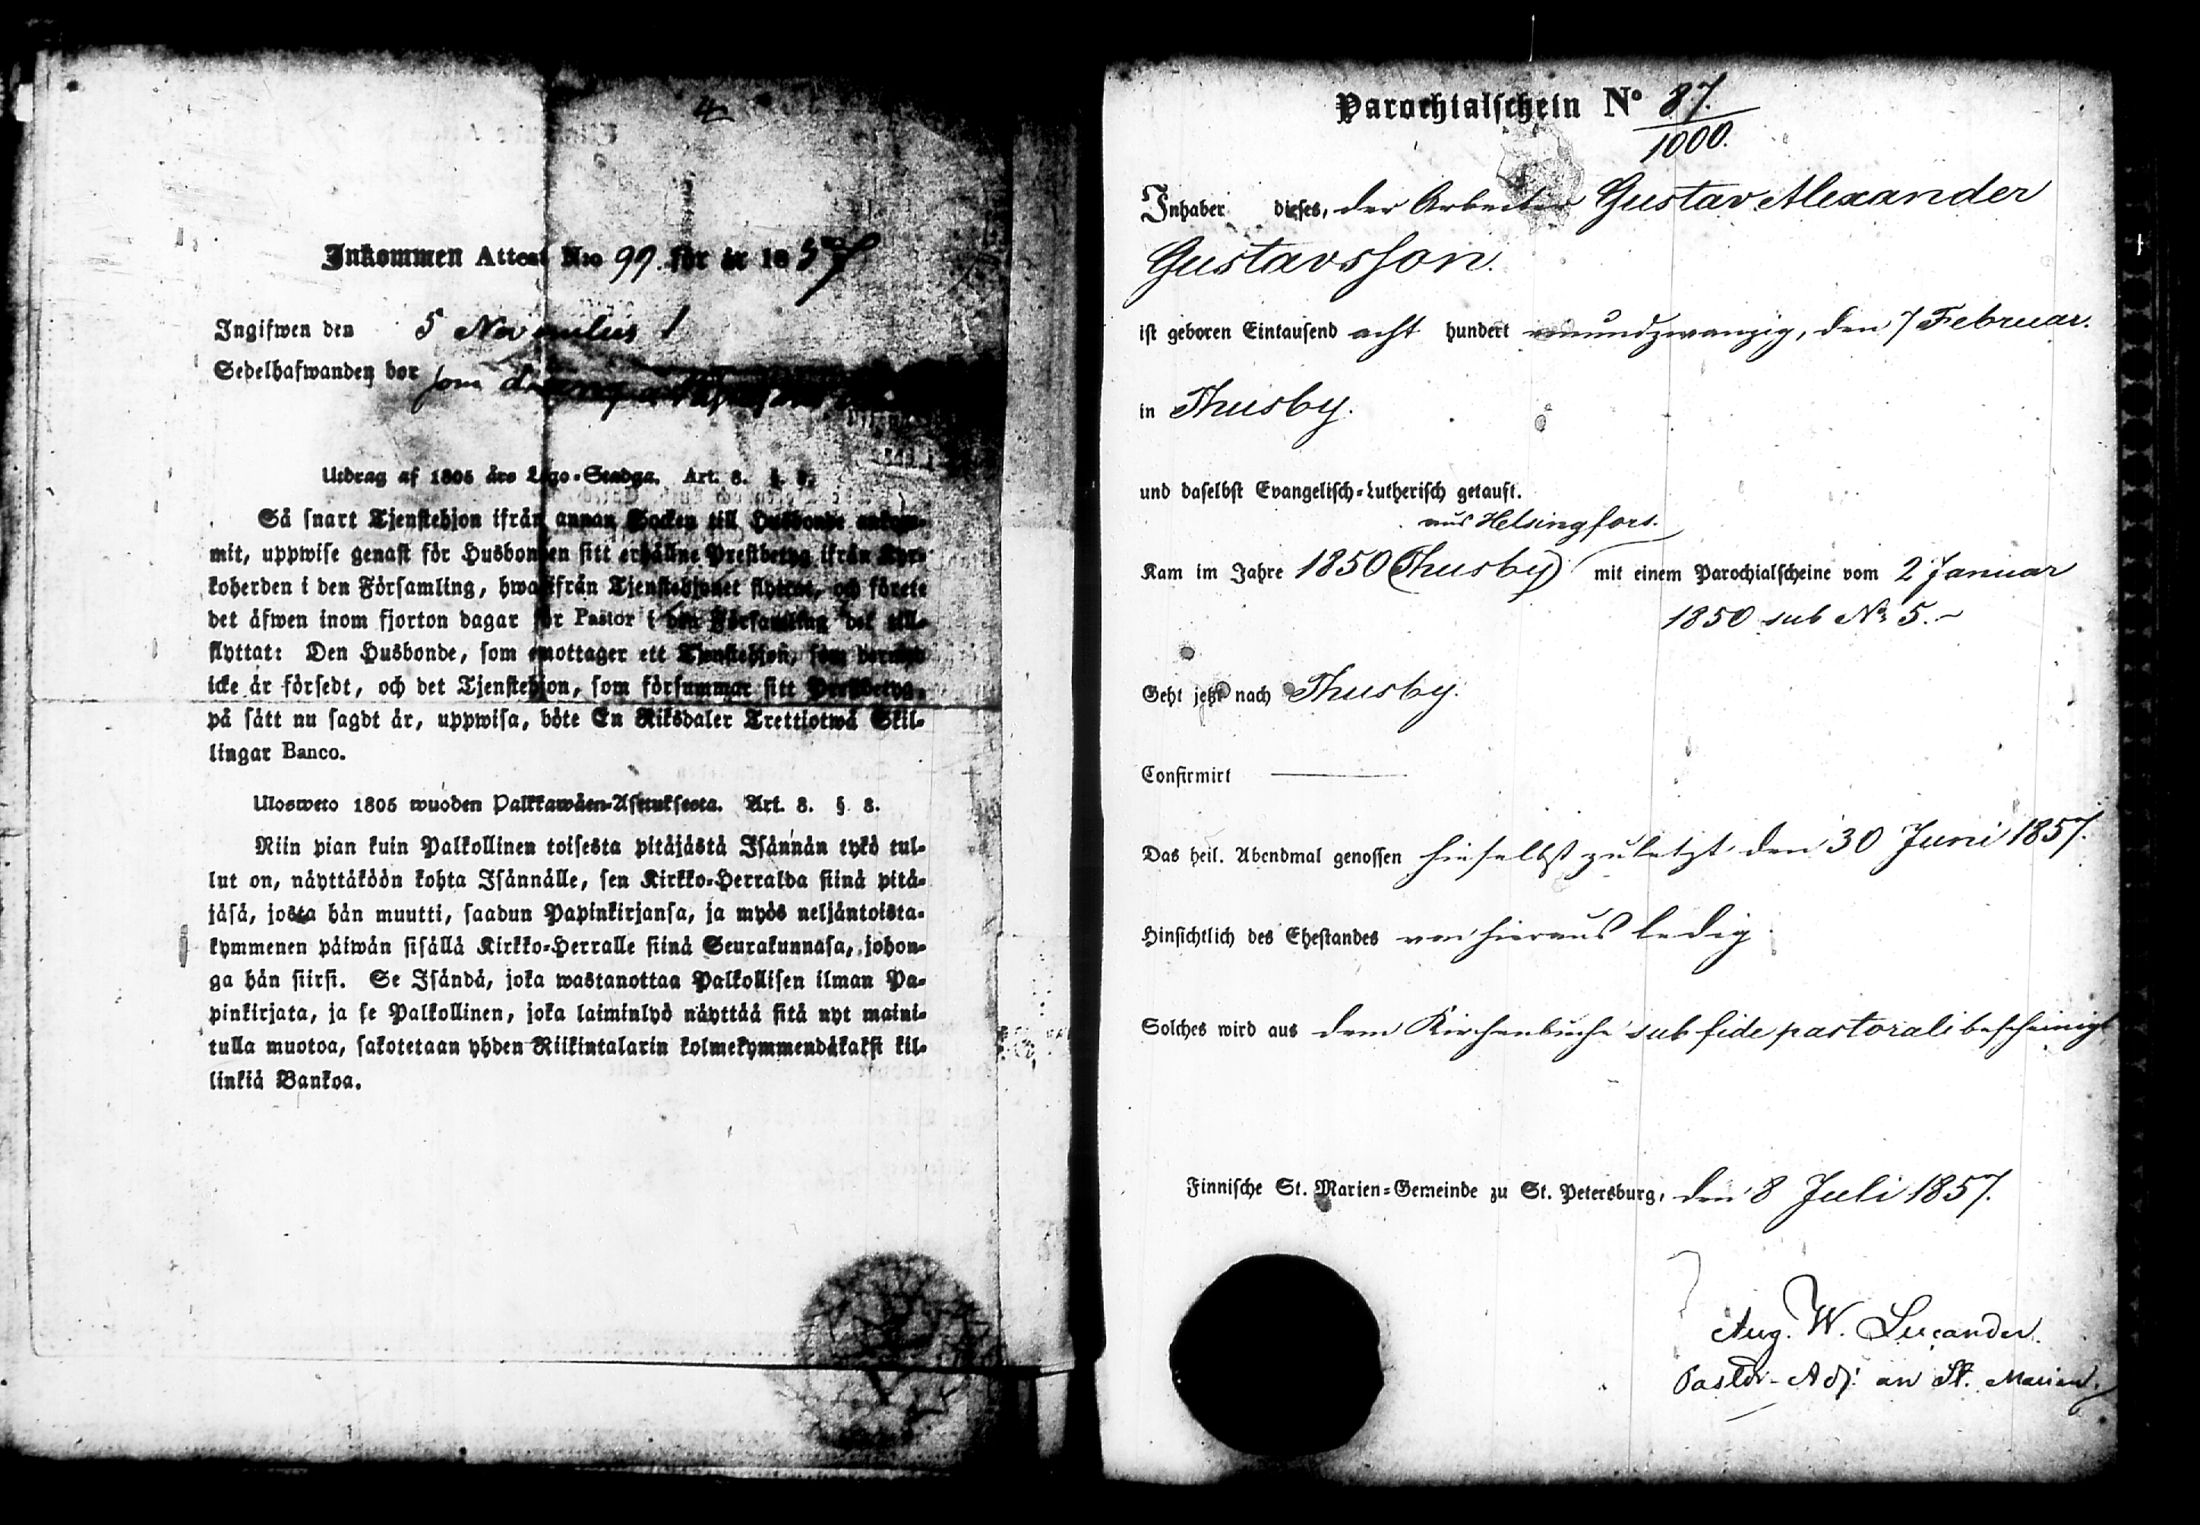 4
Inkommen Attest N:o 99. för år 1857
Ingifwen den 5 November
Sedelhafwanden bor som dräng
Utdrag af 1805 års Lego-Stadga. Art. 8. § 8.
Så snart Tjenstehjon ifrån annan Socken till Husbonde ankom-
mit, uppwise genast för Husbonden sitt erhållne Prestbetyg ifrån Kyr-
koherden i den Församling, hwarifrån Tjenstehjonet flyttat, och förete
det äfwen inom fjorton dagar för Pastor i den Församling det till-
flyttat: Den Husbonde, som emottager ett Tjenstehjon, som dermed
icke är försedt, och det Tjenstehjon, som försummar sitt Prestbetyg,
på sätt nu sagdt är, uppwisa, böte En Riksdaler Trettiotwå Skil-
lingar Banco.
Ulosweto 1805 wuoden Palkkawäen-Asetuksesta. Art. 8. § 8.
Niin pian kuin Palkollinen toisesta pitäjästä Isännän tykö tul-
lut on, näyttäköön kohta Isännälle, sen Kirkko-Herralda siinä pitä-
jäsä, josta hän muutti, saadun Papinkirjansa, ja myös neljäntoista-
kymmenen päiwän sisällä Kirkko-Herralle siinä Seurakunnasa, johon-
ga hän siirsi. Se Isändä, joka wastanottaa Palkollisen ilman Pa-
pinkirjata, ja se Palkollinen, joka laiminlyö näyttää sitä nyt maini-
tulla muotoa, sakotetaan yhden Riikintalarin kolmekymmendäkaksi kil-
linkiä Bankoa.
Parochialschein No 87.
1000.
Inhaber dieses, der Arbeiter Gustav Alexander
Gustavsson.
ist geboren Eintausend acht hundert neunundzwanzig, den 7 Februar.
in Thusby.
und daselbst Evangelisch-Lutherisch getauft.
aus Helsingfors.
Kam im Jahre 1850 (Thusby) mit einem Parochialscheine vom 2 Januar
1850 sub No 5.
Geht jetzt nach Thusby.
Confirmirt
Das heil. Abendmal genossen hieselbst zuletzt den 30 Juni 1857.
Hinsichtlich des Ehestandes von hieraus ledig.
Solches wird aus dem Kirchenbuche sub fide pastorali bescheinigt
Finnische St. Marien-Gemeinde zu St. Petersburg, den 8 Juli 1857.
Aug. W. Lucander.
Pastor-Adj: an St. Marien.